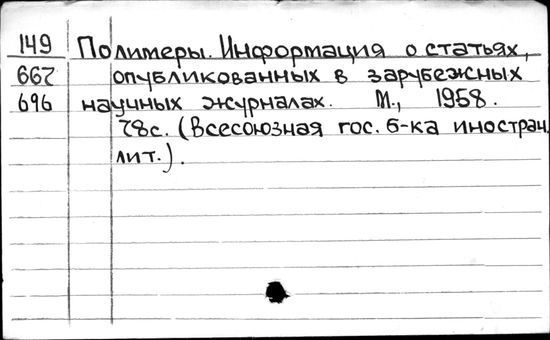 149 Полимеры. Информация о статьях,
667 опубликованных в зарубежных
696 научных журналах. М., 1958.
78с. (Всесоюзная гос. б-ка иностран.
лит.).